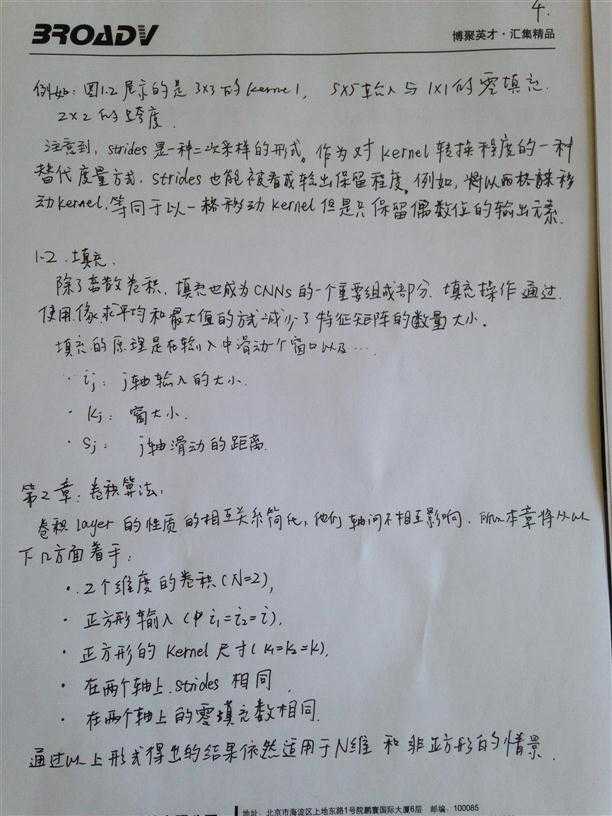 4.
BROADV
博聚英才·汇集精品
例如:图1.2展示的是3x3的kernel, 5x5输入与1x1的零填充.
2x2的跨度.
注意到, strides是一种二次采样的形式。作为对kernel转换程度的一种
替代度量方式, strides也能被看成输出保留程度。例如, 将以两格跳移
动kernel, 等同于以一格移动kernel但是只保留偶数位的输出元素.
1-2.填充.
除了离散卷积, 填充也成为CNNs的一个重要组成部分. 填充操作通过.
使用像求平均和最大值的方式减少了特征矩阵的数量大小。
填充的原理是在输入中滑动个窗口以及…
· ij: j轴输入的大小.
· kj: 窗大小.
· sj: j轴滑动的距离.
第2章:卷积算法:
卷积layer的性质的相互关系简化, 他们轴间不相互影响. 所以本章将从以
下几方面着手:
· 2个维度的卷积(N=2),
· 正方形输入(中i1=i2=i),
· 正方形的kernel尺寸(k1=k2=k),
· 在两个轴上strides相同
· 在两个轴上的零填充数相同.
通过以上形式得出的结果依然适用于N维 和 非正方形的情景.
地址:北京市海淀区上地东路1号院鹏寰国际大厦6层 邮编:100085